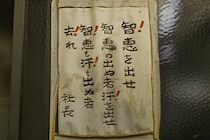 智恵を出せ!
智恵の出ぬ者汗を出せ!
智恵も汗も出ぬ者!
去れ!
社長